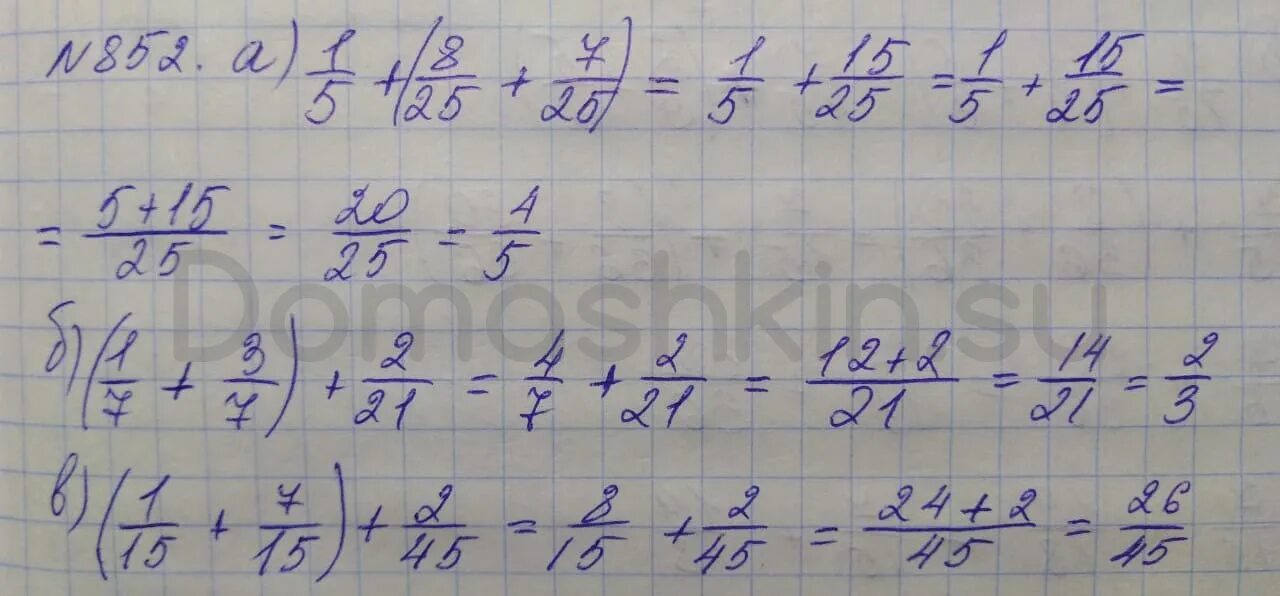 №852. а) 1/5 + (8/25 + 7/25) = 1/5 + 15/25 = 1/5 + 15/25 =
= 5+15/25 = 20/25 = 4/5
Domoshkin.su
б) (1/7 + 3/7) + 2/21 = 4/7 + 2/21 = 12+2/21 = 14/21 = 2/3
в) (1/15 + 7/15) + 2/45 = 8/15 + 2/45 = 24+2/45 = 26/45